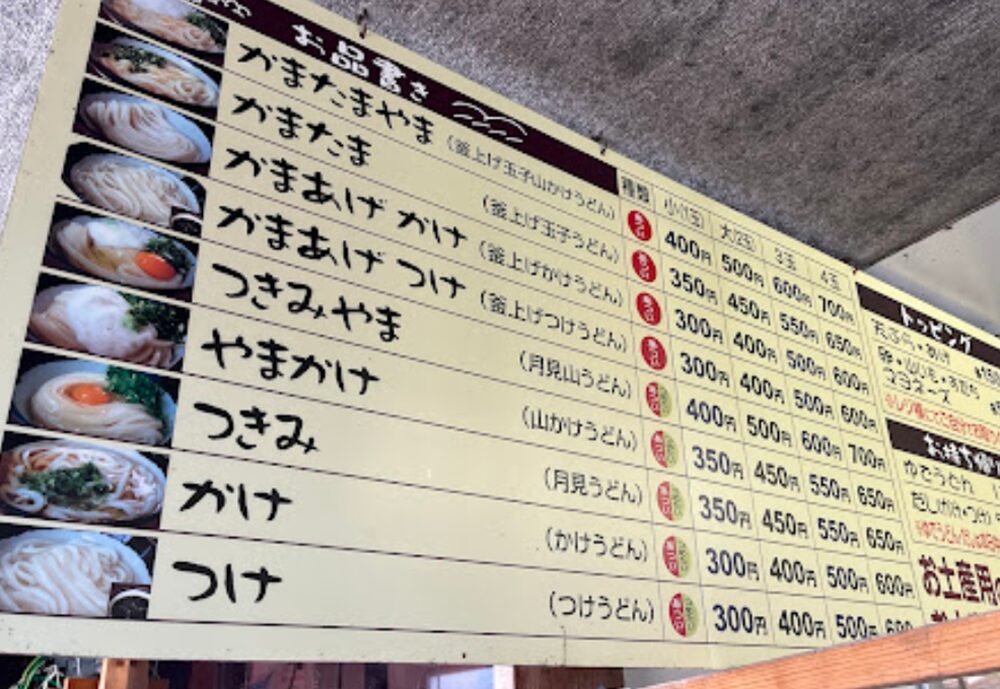 お品書き
種類 小(1玉) 大(2玉) 3玉 4玉
かまたまやま (釜上げ玉子山かけうどん) あつい 400円 500円 600円 700円
かまたま (釜上げ玉子うどん) あつい 350円 450円 550円 650円
かまあげ かけ (釜上げかけうどん) あつい 300円 400円 500円 600円
かまあげ つけ (釜上げつけうどん) あつい 300円 400円 500円 600円
つきみやま (月見山うどん) 400円 500円 600円 700円
やまかけ (山かけうどん) 350円 450円 550円 650円
つきみ (月見うどん) 350円 450円 550円 650円
かけ (かけうどん) 300円 400円 500円 600円
つけ (つけうどん) 300円 400円 500円 600
トッピング
天ぷら・あげ
卵・山いも・すだち
マヨネーズ
お持ち帰り
ゆでうどん
だし(かけ・つけ)
お土産用